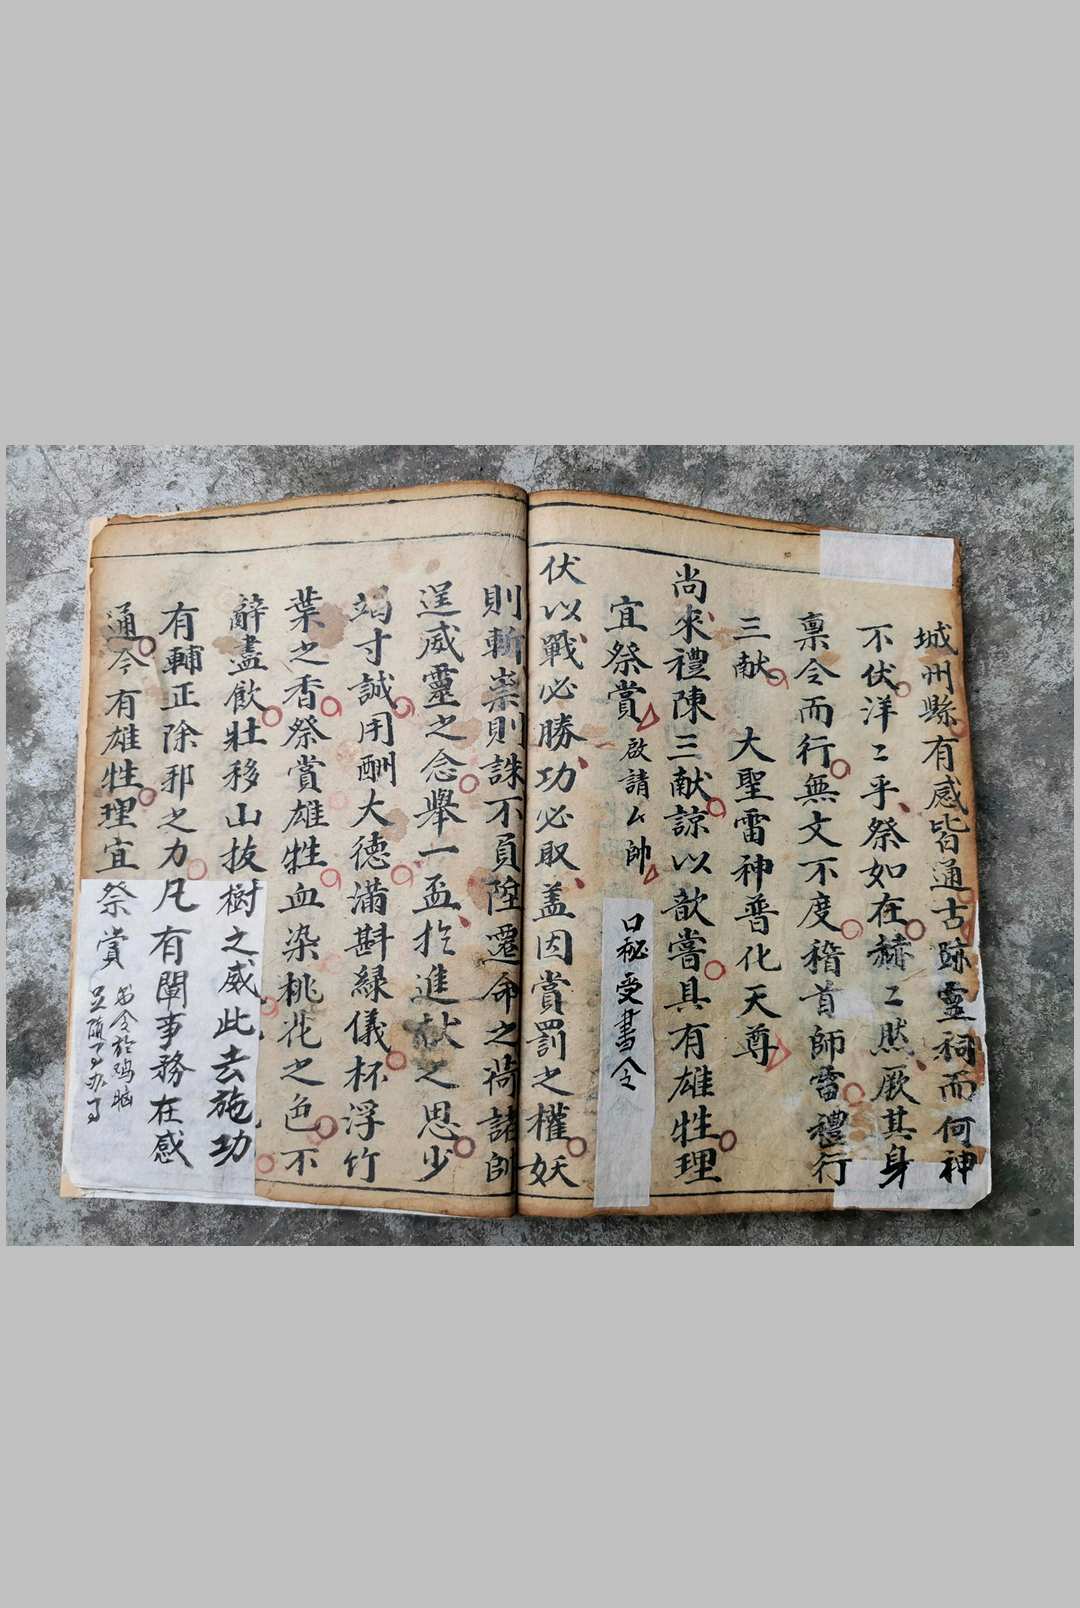 城州縣有感皆通古跡靈祠而何神
不伏洋〻乎祭如在赫〻然厥其身
稟令而行無文不度稽首師雷禮行
三献 大聖雷神普化天尊
尚來禮陳三献諒以歆嘗具有雄牲理
宜祭賞 啟請厶帥
口秘受書令
伏以戰必勝功必取盖因賞罰之權妖
則斬祟則誅不負陞遷命之荷諸帥
逞威靈之念舉一盃於進献之思少
竭寸誠用酬大德滿斟緑儀杯浮竹
葉之香祭賞雄牲血染桃花之色不
辭盡飲壯移山拔樹之威此去施功
有輔正除邪之力凡有闡事務在感
通今有雄牲理宜祭賞